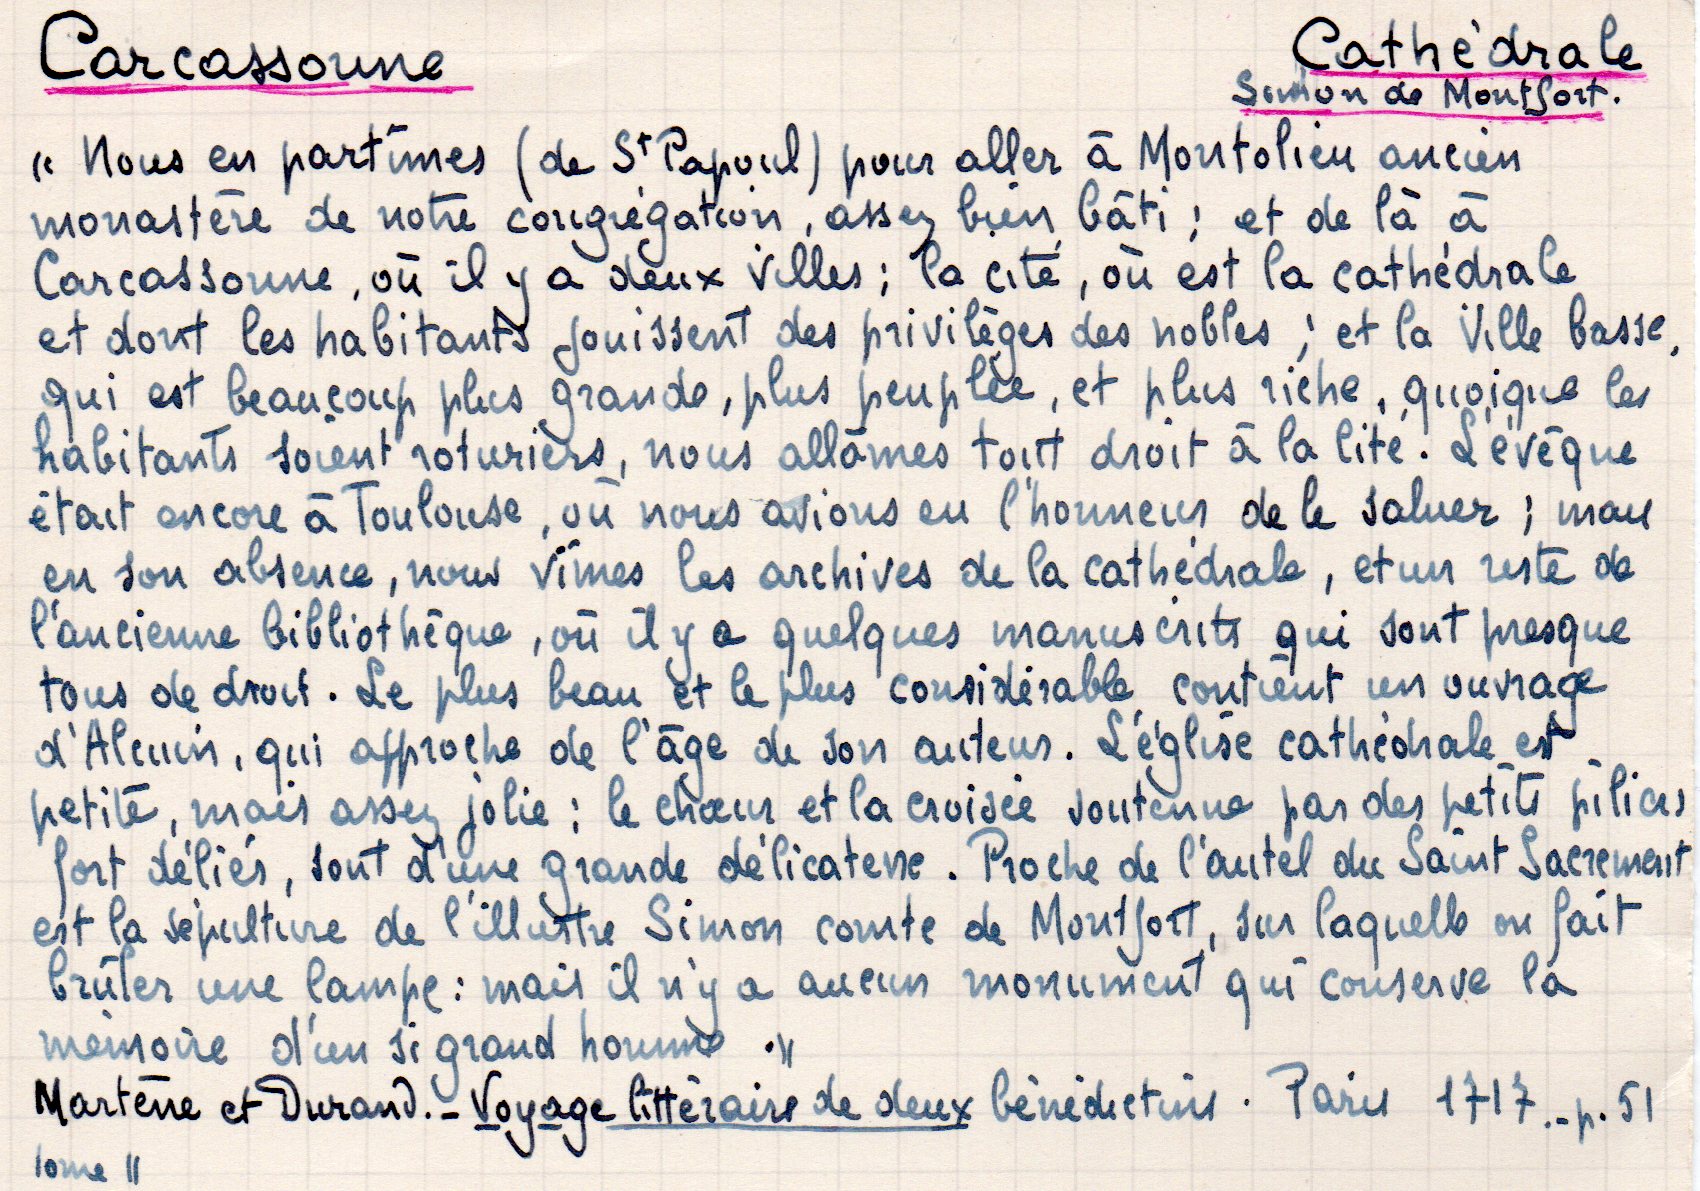 Carcassonne
Cathédrale
Simon de Montfort.
« Nous en partîmes (de St Papoul) pour aller à Montolieu ancien
monastère de notre congrégation, assez bien bâti ; et de là à
Carcassonne, où il y a deux villes ; la cité, où est la cathédrale
et dont les habitants jouissent des privilèges des nobles ; et la ville basse,
qui est beaucoup plus grande, plus peuplée, et plus riche, quoique les
habitants soient roturiers, nous allâmes tout droit à la cité. L'évêque
était encore à Toulouse, où nous avions eu l'honneur de le saluer ; mais
en son absence, nous vîmes les archives de la cathédrale, et un reste de
l'ancienne bibliothèque, où il y a quelques manuscrits qui sont presque
tous de droit. Le plus beau et le plus considérable contient un ouvrage
d'Alcuin, qui approche de l'âge de son auteur. L'église cathédrale est
petite, mais assez jolie : le chœur et la croisée soutenue par des petits piliers
fort déliés, sont d'une grande délicatesse. Proche de l'autel du Saint Sacrement
est la sépulture de l'illustre Simon comte de Montfort, sur laquelle on fait
brûler une lampe : mais il n'y a aucun monument qui conserve la
mémoire d'un si grand homme . »
Martène et Durand. - Voyage littéraire de deux bénédictins. Paris 1717. - p. 51
Tome II